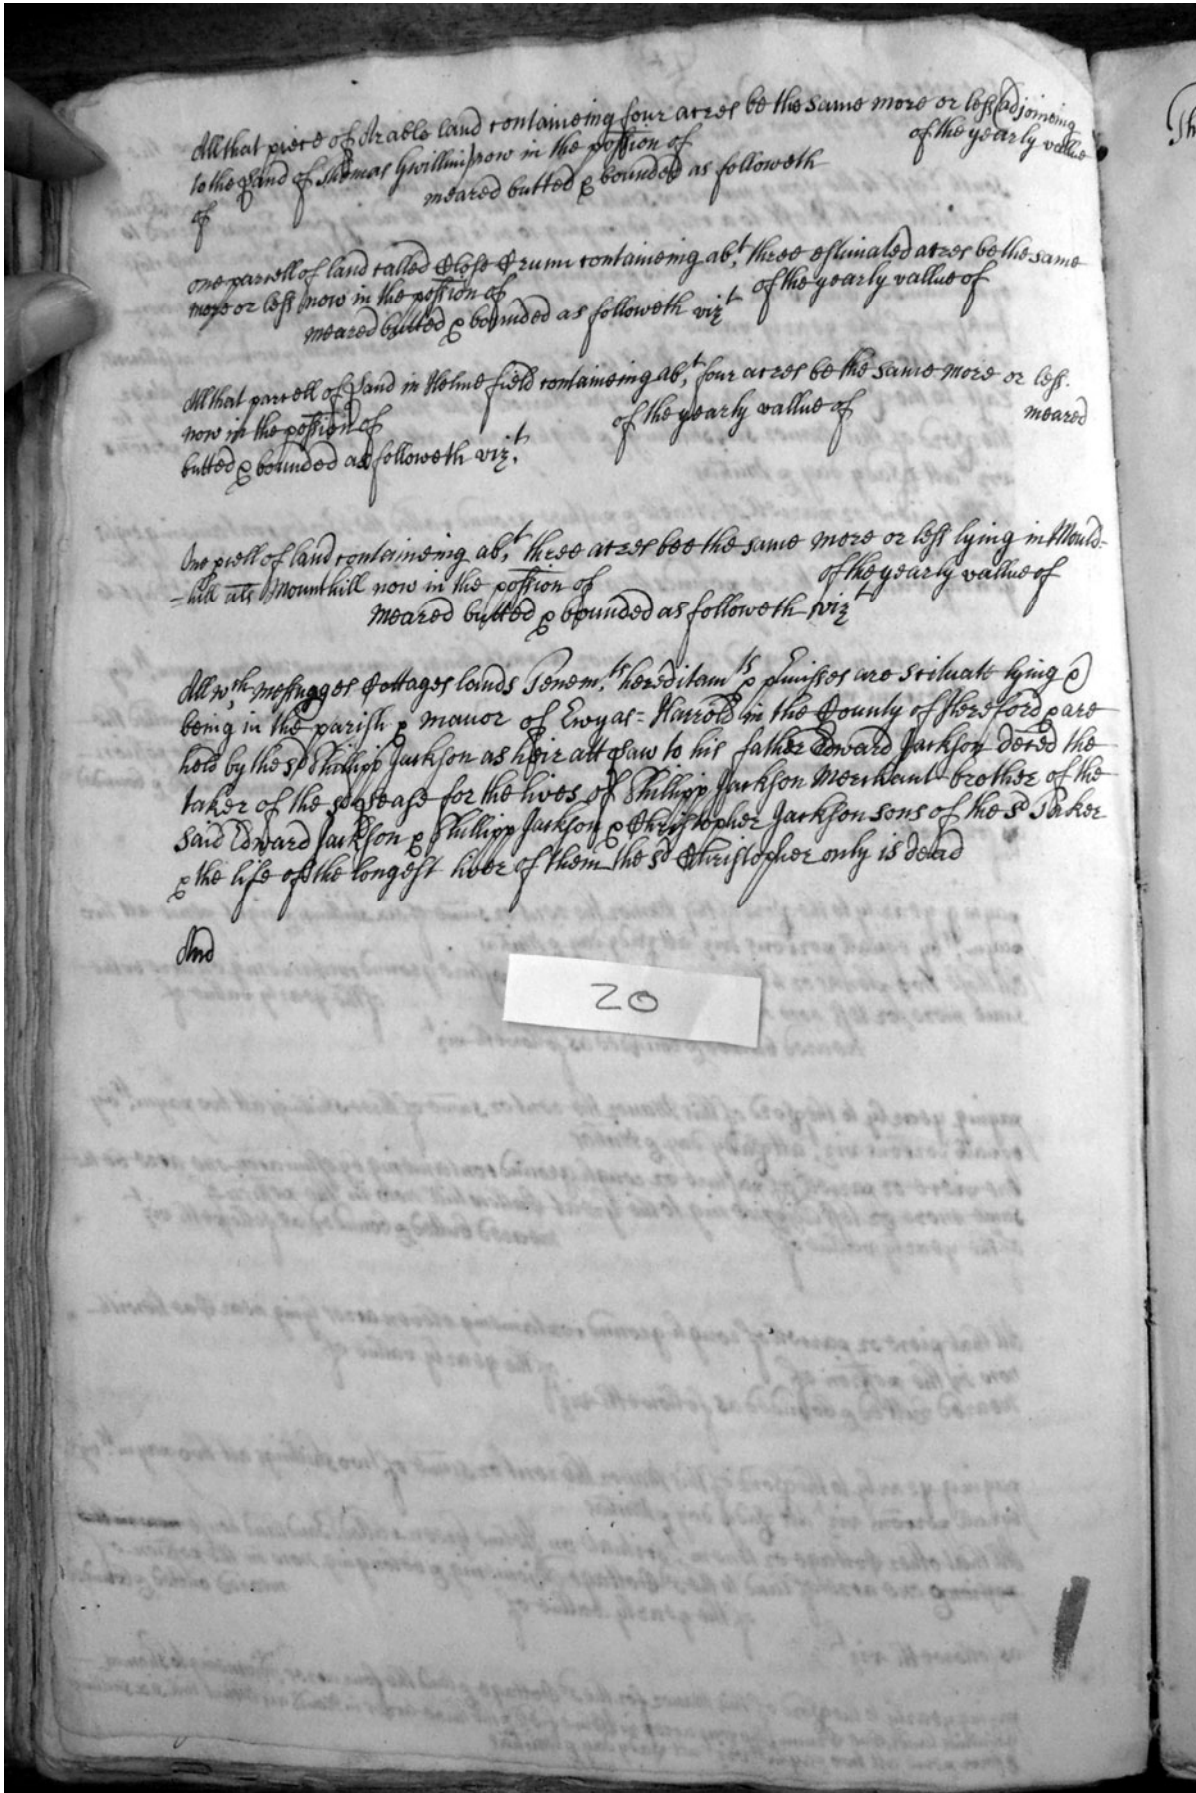 All that piece of Arable land containeing four acres be the same more or less (adjoineing
to the Land of Thomas Gwillim) now in the possion of of the yearly vallue
of meared butted & bounded as followeth
one parcell of land called Close Crum containeing abt. three estimated acres be the same
more or less now in the possion of of the yearly vallue of
meared butted & bounded as followeth vizt
All that parcell of Land in Helme field containeing abt. four acres be the same more or less.
now in the possion of of the yearly vallue of meared
butted & bounded as followeth vizt.
One pcell of land containeing abt. three acres bee the same more or less lying in Mould-
-hill als Mounthill now in the possion of of the yearly vallue of
meared butted & bounded as followeth vizt
All wch. messuages Cottages lands Tenemts. hereditamts & pmisses are scituate lying &
being in the parish & manor of Ewyas=Harrold in the County of Hereford & are
held by the sd Phillipp Jackson as heir att Law to his father Edward Jackson deced the
taker of the sd Lease for the lives of Phillipp Jackson Merchant brother of the
said Edward Jackson & Phillipp Jackson & Christopher Jackson sons of the sd Taker
& the life of the longest liver of them the sd Christopher only is dead
And
20